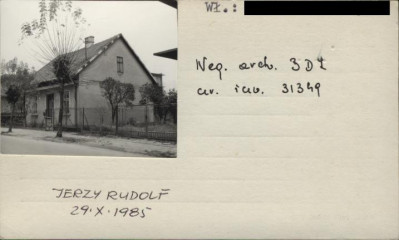 Wł.:
Neg. arch. 3Dt
nr. inw. 31349
JERZY RUDOLF
29.X.1985